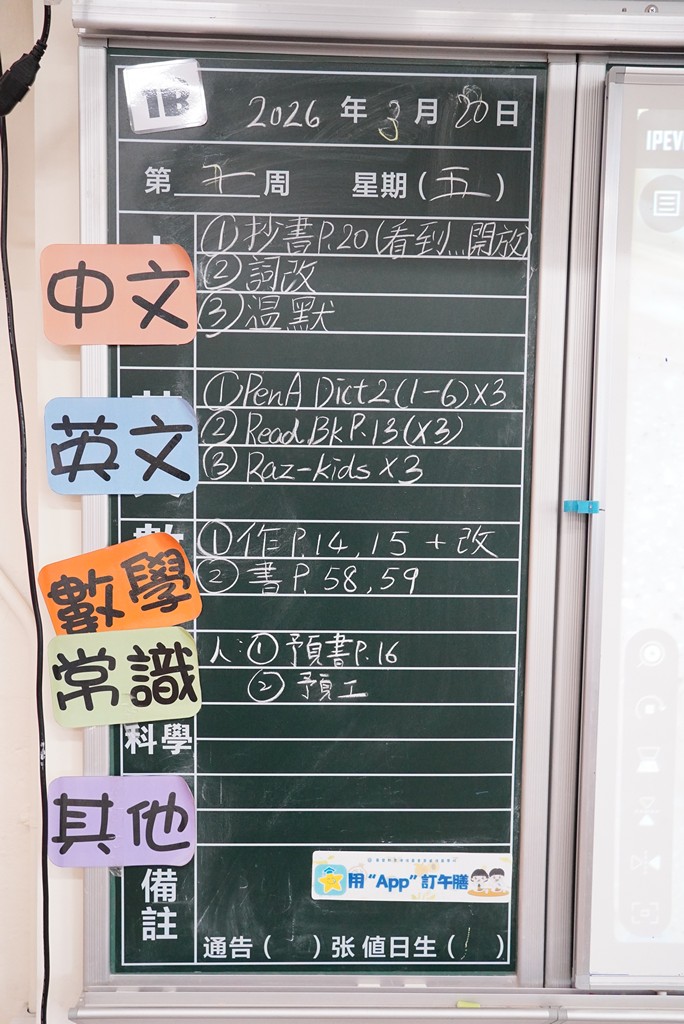 1B
2026 年 3 月 20 日
第 五 周 星期 (五)
中文
①抄書P.20(看到...開放)
②詞改
③温默
英文
①PenA Dict2(1-6)×3
②Read Bk P.13(×3)
③Raz-kids ×3
數學
①作P.14,15 + 改
②書P.58,59
常識
人:①預書P.16
②預工
科學
其他
備註
用“App”訂午膳
通告( )张 值日生( )
IPEV